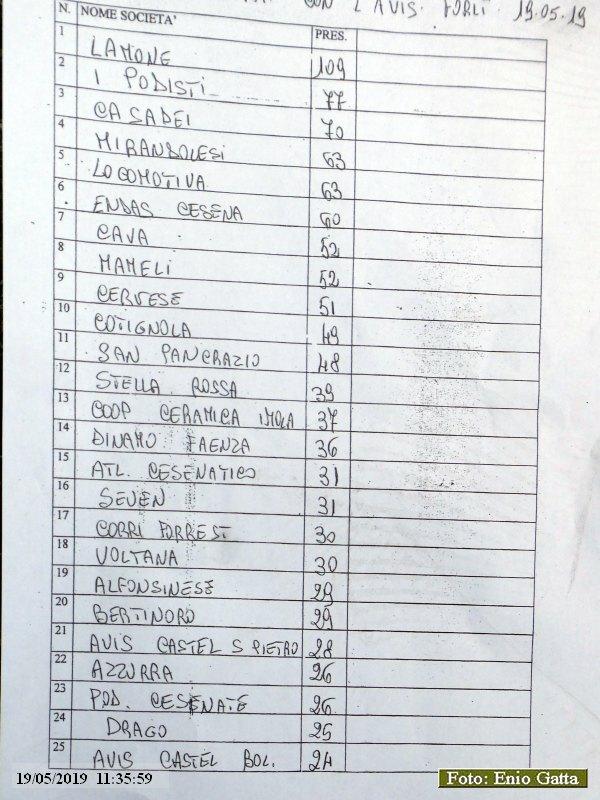 CON L'AVIS FORLI' 19.05.19
N. NOME SOCIETA' PRES.
1 LAMONE 109
2 I PODISTI 77
3 CASADEI 70
4 MIRANDOLESI 63
5 LOCOMOTIVA 63
6 ENDAS CESENA 60
7 CAVA 52
8 MAMELI 52
9 CERVESE 51
10 COTIGNOLA 49
11 SAN PANCRAZIO 48
12 STELLA ROSSA 39
13 COOP CERAMICA IMOLA 37
14 DINAMO FAENZA 36
15 ATL. CESENATICO 31
16 SEVEN 31
17 CORRI FORREST 30
18 VOLTANA 30
19 ALFONSINESE 29
20 BERTINORO 29
21 AVIS CASTEL S PIETRO 28
22 AZZURRA 26
23 POD. CESENATE 26
24 DRAGO 25
25 AVIS CASTEL BOL. 24
19/05/2019 11:35:59
Foto: Enio Gatta